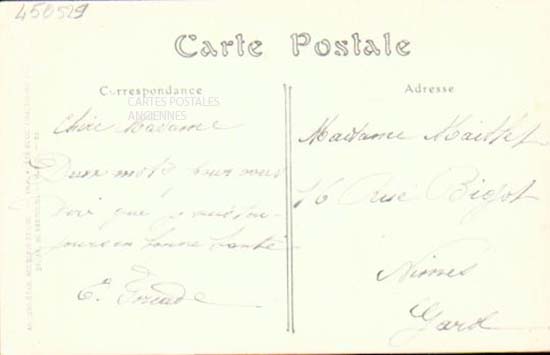 450529
Carte Postale
Correspondance
Adresse
CARTES POSTALES
ANCIENNES
Chère Madame
Deux mots pour vous
que je suis tou-
jours en bonne santé
E.
Madame
16 Rue Bigot
Nimes
Gard